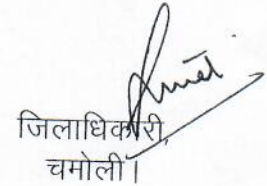 जिलाधिकारी,
चमोली।